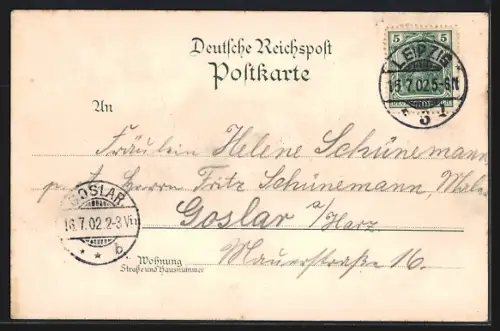 Deutsche Reichspost
Postkarte
5 5
LEIPZIG
16.7.02.5-6N
3
An
Fräulein Helene Schünemann
Herrn Fritz Schünemann, Maler
Goslar a/Harz
GOSLAR
16.7.02.2-3N
* * b
Wohnung
Straße und Hausnummer
Mauerstraße 16.